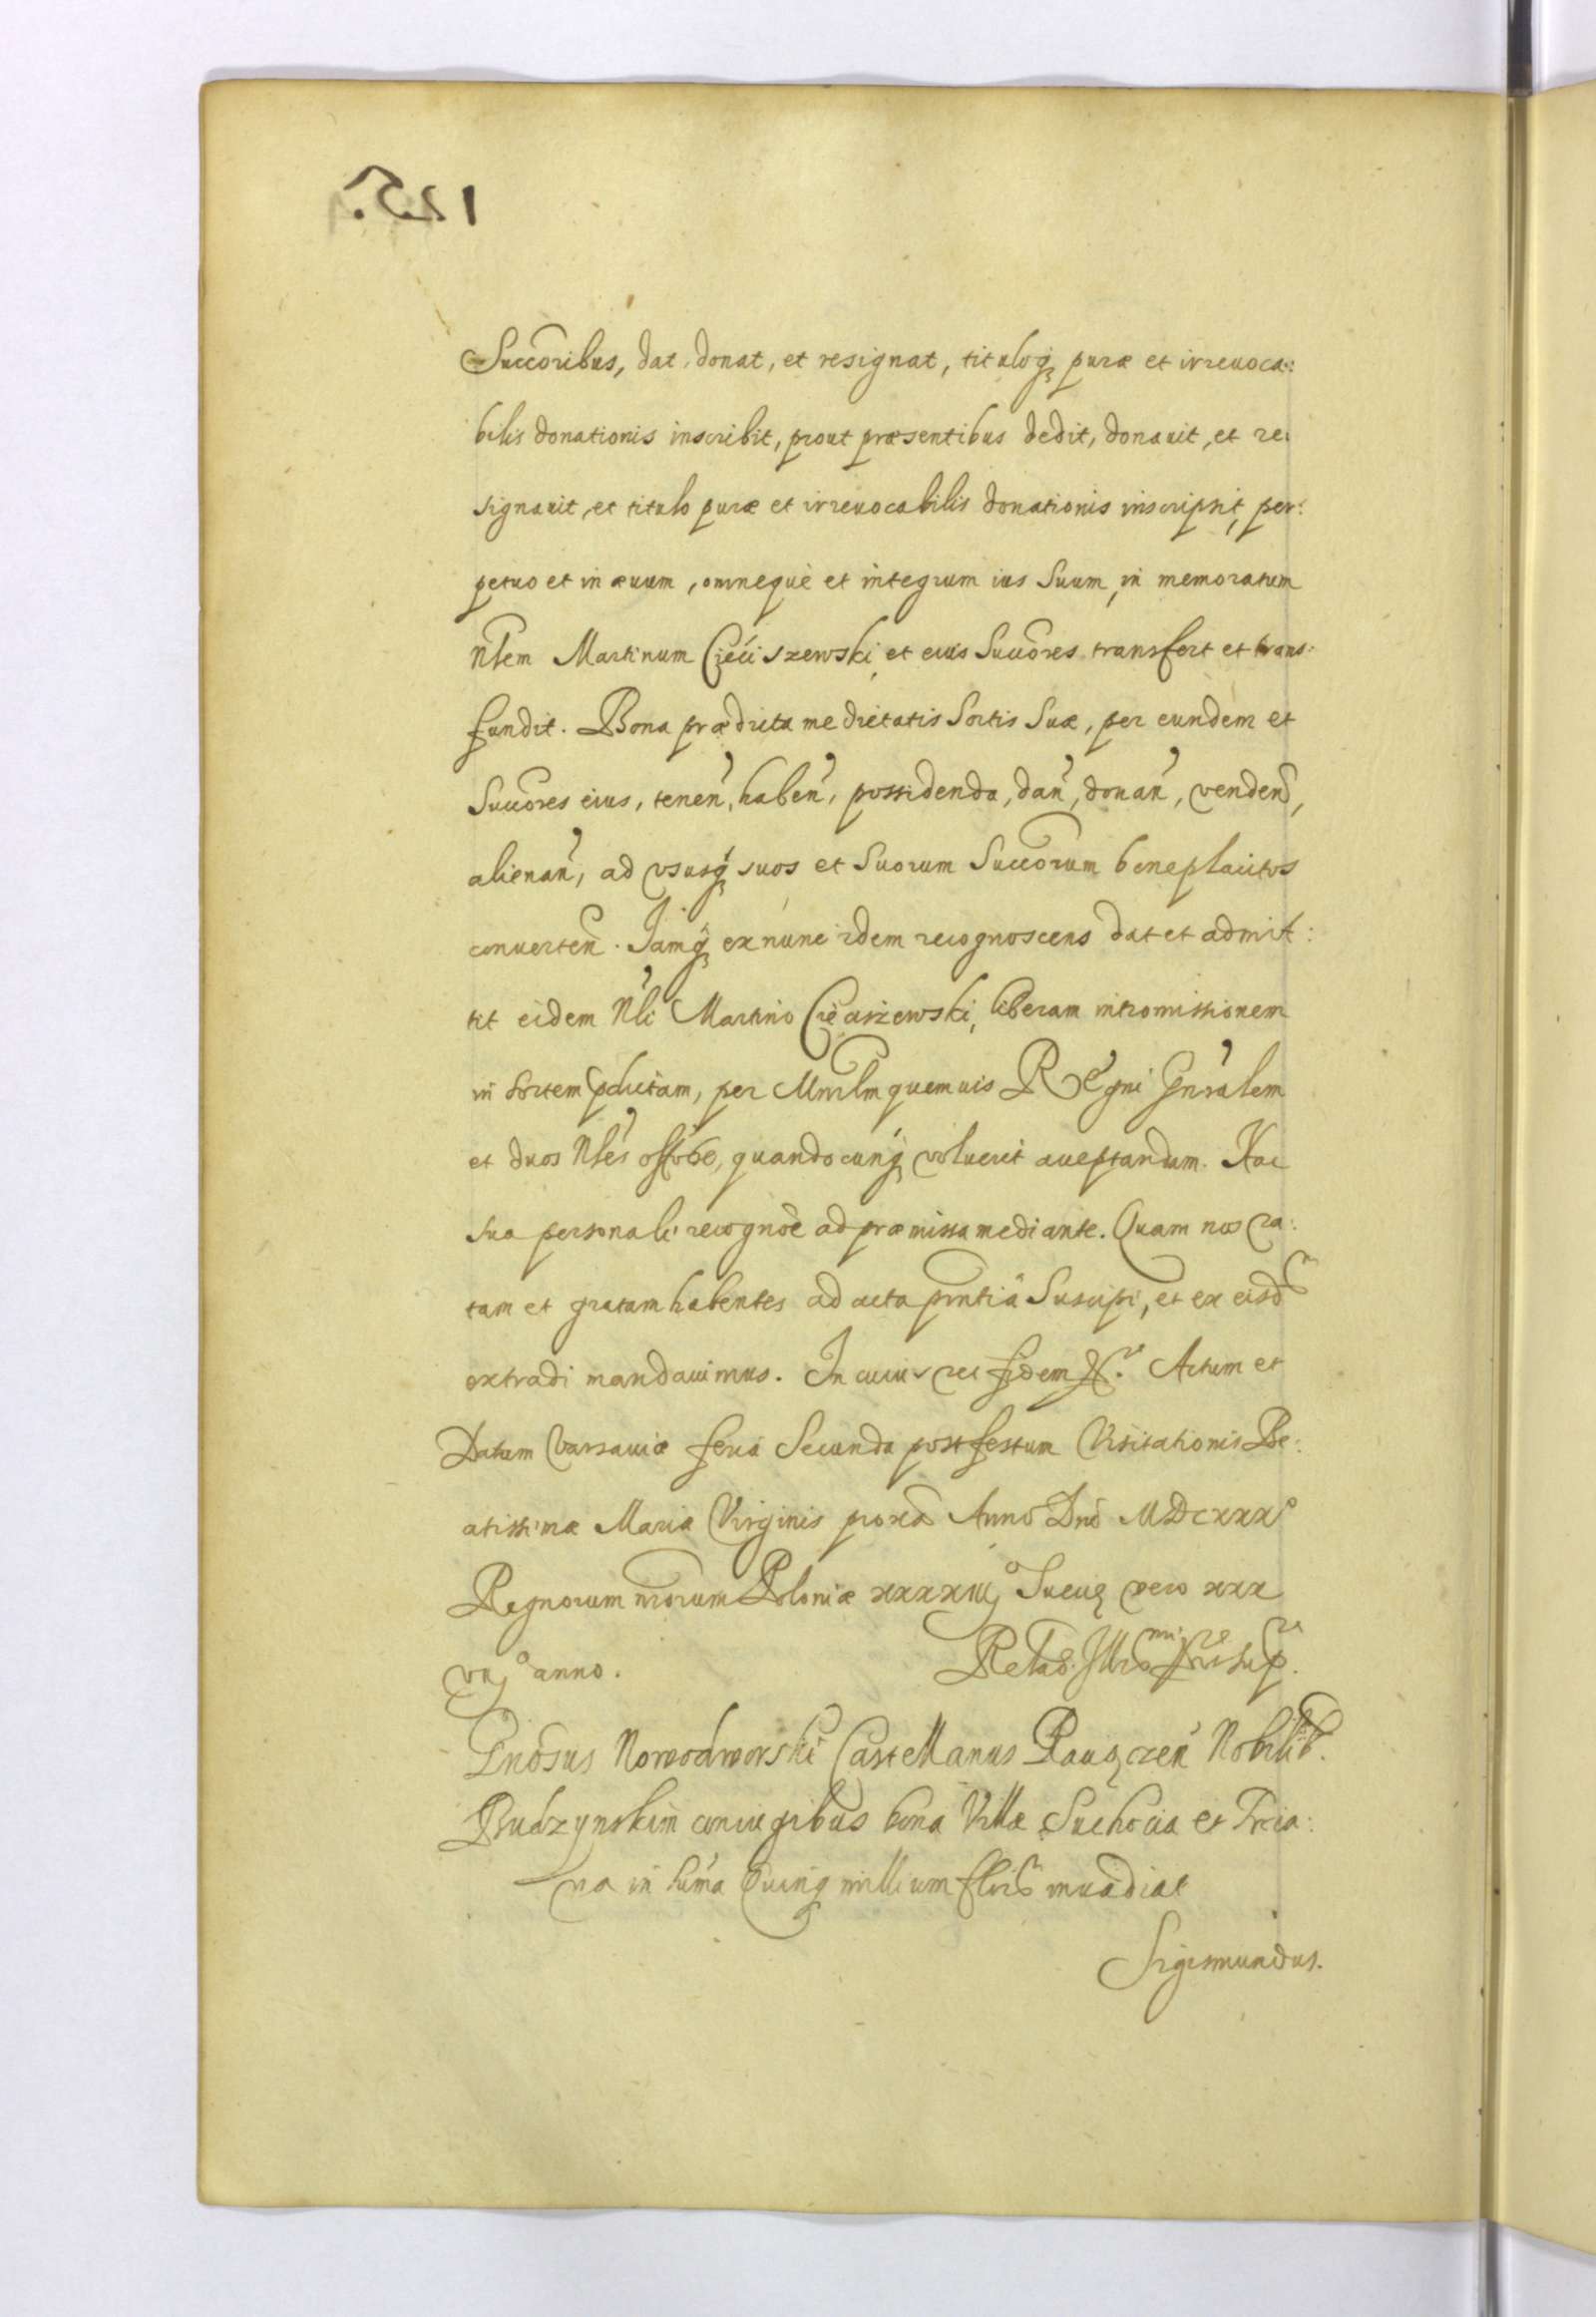 125.
Succoribus, dat, donat, et resignat, tituloq puræ et irreuoca:
bilis donationis inscribit, prout præsentibus dedit, donauit, et re:
signauit, et titulo puræ et irreuocabilis donationis inscripsit, per:
petuo et in æuum, omnequè et integrum ius Suum, in memoratum
Nlem Martinum Cieciszewski, et eius Succores transfert et trans:
fundit. Bona prædicta medietatis Sortis Suæ, per eundem et
Succores eius, tenen, haben, possidenda, dan, donan, venden,
alienan, ad vsusq suos et Suorum Succorum beneplacitos
conuerten. Jamq ex nunc idem recognoscens dat et admit:
tit eidem Nli Martino Cieciszewski, liberam intromissionem
in Sortem pdictam, per Mnrlm quemuis Regni Gnralem
et duos Nles quandocunq voluerit acceptandam. Hac
sua personali recognoe ad præmissa mediante. Quam nos ra:
tam et gratam habentes ad acta pntia Suscipi, et ex eisd
extradi mandauimus. In cuius rei fidem Actum et
Datum Varsauiæ feria Secunda post festum Visitationis Be:
atissimæ Mariæ Virginis proxa Anno Dni MDCXXX
Regnorum nrorum Poloniæ xxxxiij Sueciæ vero xxx
vij anno. Relao Illris
Gnosus Nowodworski Castellanus Nobilib.
Budzynskim coniugibus bona Villæ Suchocia et
na in suma Quinq millium flor inuadiat
Sigismundus.